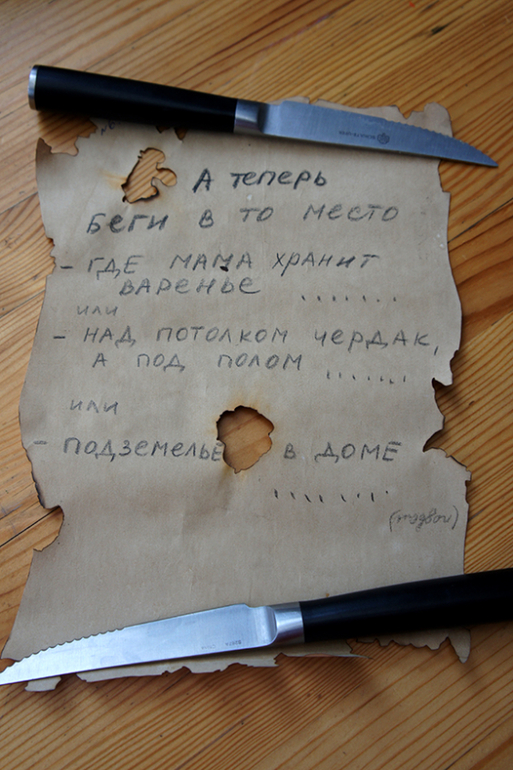 А теперь
беги в то место
- где мама хранит
варенье .......
или
- над потолком чердак,
а под полом .......
или
- подземелье в доме
.......
(подвал)